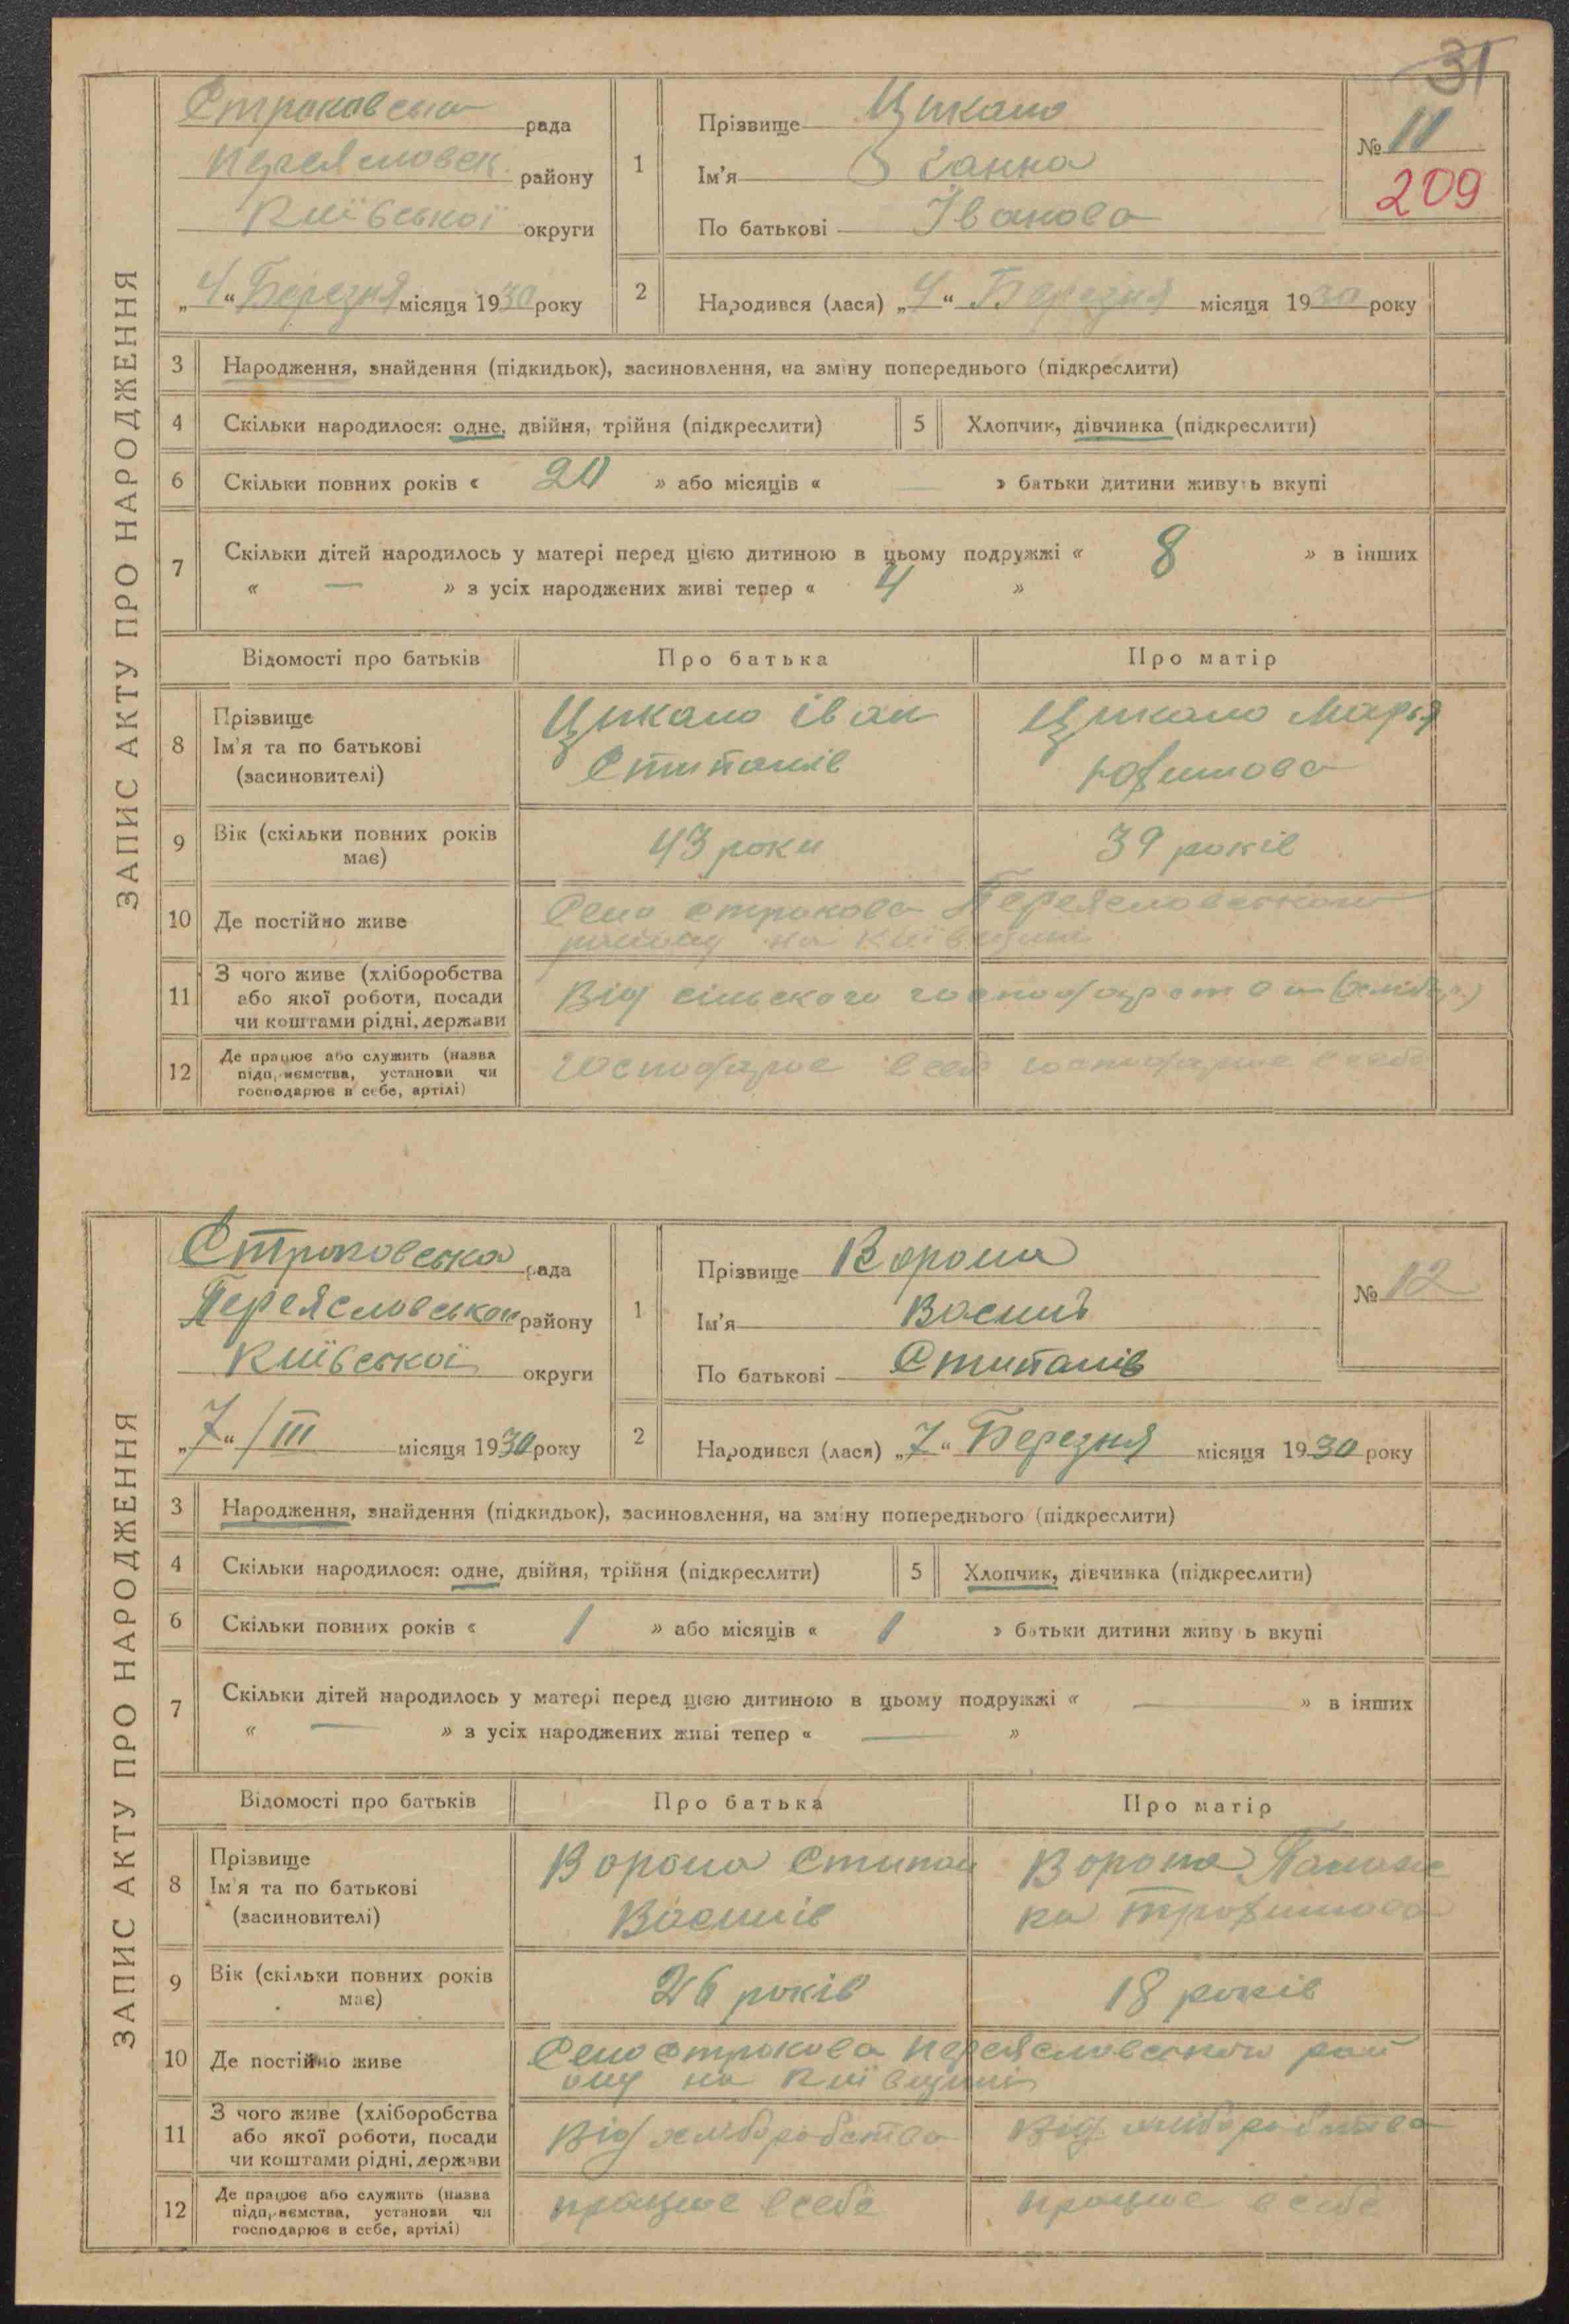 31
ЗАПИС АКТУ ПРО НАРОДЖЕННЯ
Строковська рада
Переясловськ. району
Київської округи
„4“ Березня місяця 1930 року
1
Прізвище Цикало
Ім'я Ганна
По батькові Іванова
№ 11
209
2
Народився (лася) „4“ Березня місяця 1930 року
3 Народження, знайдення (підкидьок), засиновлення, на зміну попереднього (підкреслити)
4 Скільки народилося: одне, двійня, трійня (підкреслити) 5 Хлопчик, дівчинка (підкреслити)
6 Скільки повних років « 20 » або місяців « — » батьки дитини живуть вкупі
7 Скільки дітей народилось у матері перед цією дитиною в цьому подружжі « 8 » в інших
« — » з усіх народжених живі тепер « 4 »
Відомості про батьків Про батька Про матір
8 Прізвище
Ім'я та по батькові
(засиновителі)
Цикало Іван
Стипанів
Цикало Марья
Юфимова
9 Вік (скільки повних років
має)
43 роки
39 років
10 Де постійно живе
Село Строкова Переясловського
району на Київщині
11 З чого живе (хліборобства
або якої роботи, посади
чи коштами рідні, держави
Від сільского господарства
12 Де працює або служить (назва
підприємства, установи чи
господарює в себе, артілі)
господарює в себе господарює в себе
ЗАПИС АКТУ ПРО НАРОДЖЕННЯ
Строковська рада
Переясловського району
Київської округи
„7“ /III місяця 1930 року
1
Прізвище Ворона
Ім'я Василь
По батькові Стипанів
№ 12
2
Народився (лася) „7“ Березня місяця 1930 року
3 Народження, знайдення (підкидьок), засиновлення, на зміну попереднього (підкреслити)
4 Скільки народилося: одне, двійня, трійня (підкреслити) 5 Хлопчик, дівчинка (підкреслити)
6 Скільки повних років « 1 » або місяців « 1 » батьки дитини живу ь вкупі
7 Скільки дітей народилось у матері перед цією дитиною в цьому подружжі « — » в інших
« — » з усіх народжених живі тепер « — »
Відомості про батьків Про батька Про матір
8 Прізвище
Ім'я та по батькові
(засиновителі)
Ворона Стипан
Василів
Ворона
Трофимова
9 Вік (скільки повних років
має)
26 років
18 років
10 Де постійно живе
Село Строкова Переясловського рай
ону на Київщині
11 З чого живе (хліборобства
або якої роботи, посади
чи коштами рідні, держави
Від хліборобства
Від хліборобства
12 Де працює або служить (назва
підприємства, установи чи
господарює в себе, артілі)
працює в себе
працює в себе